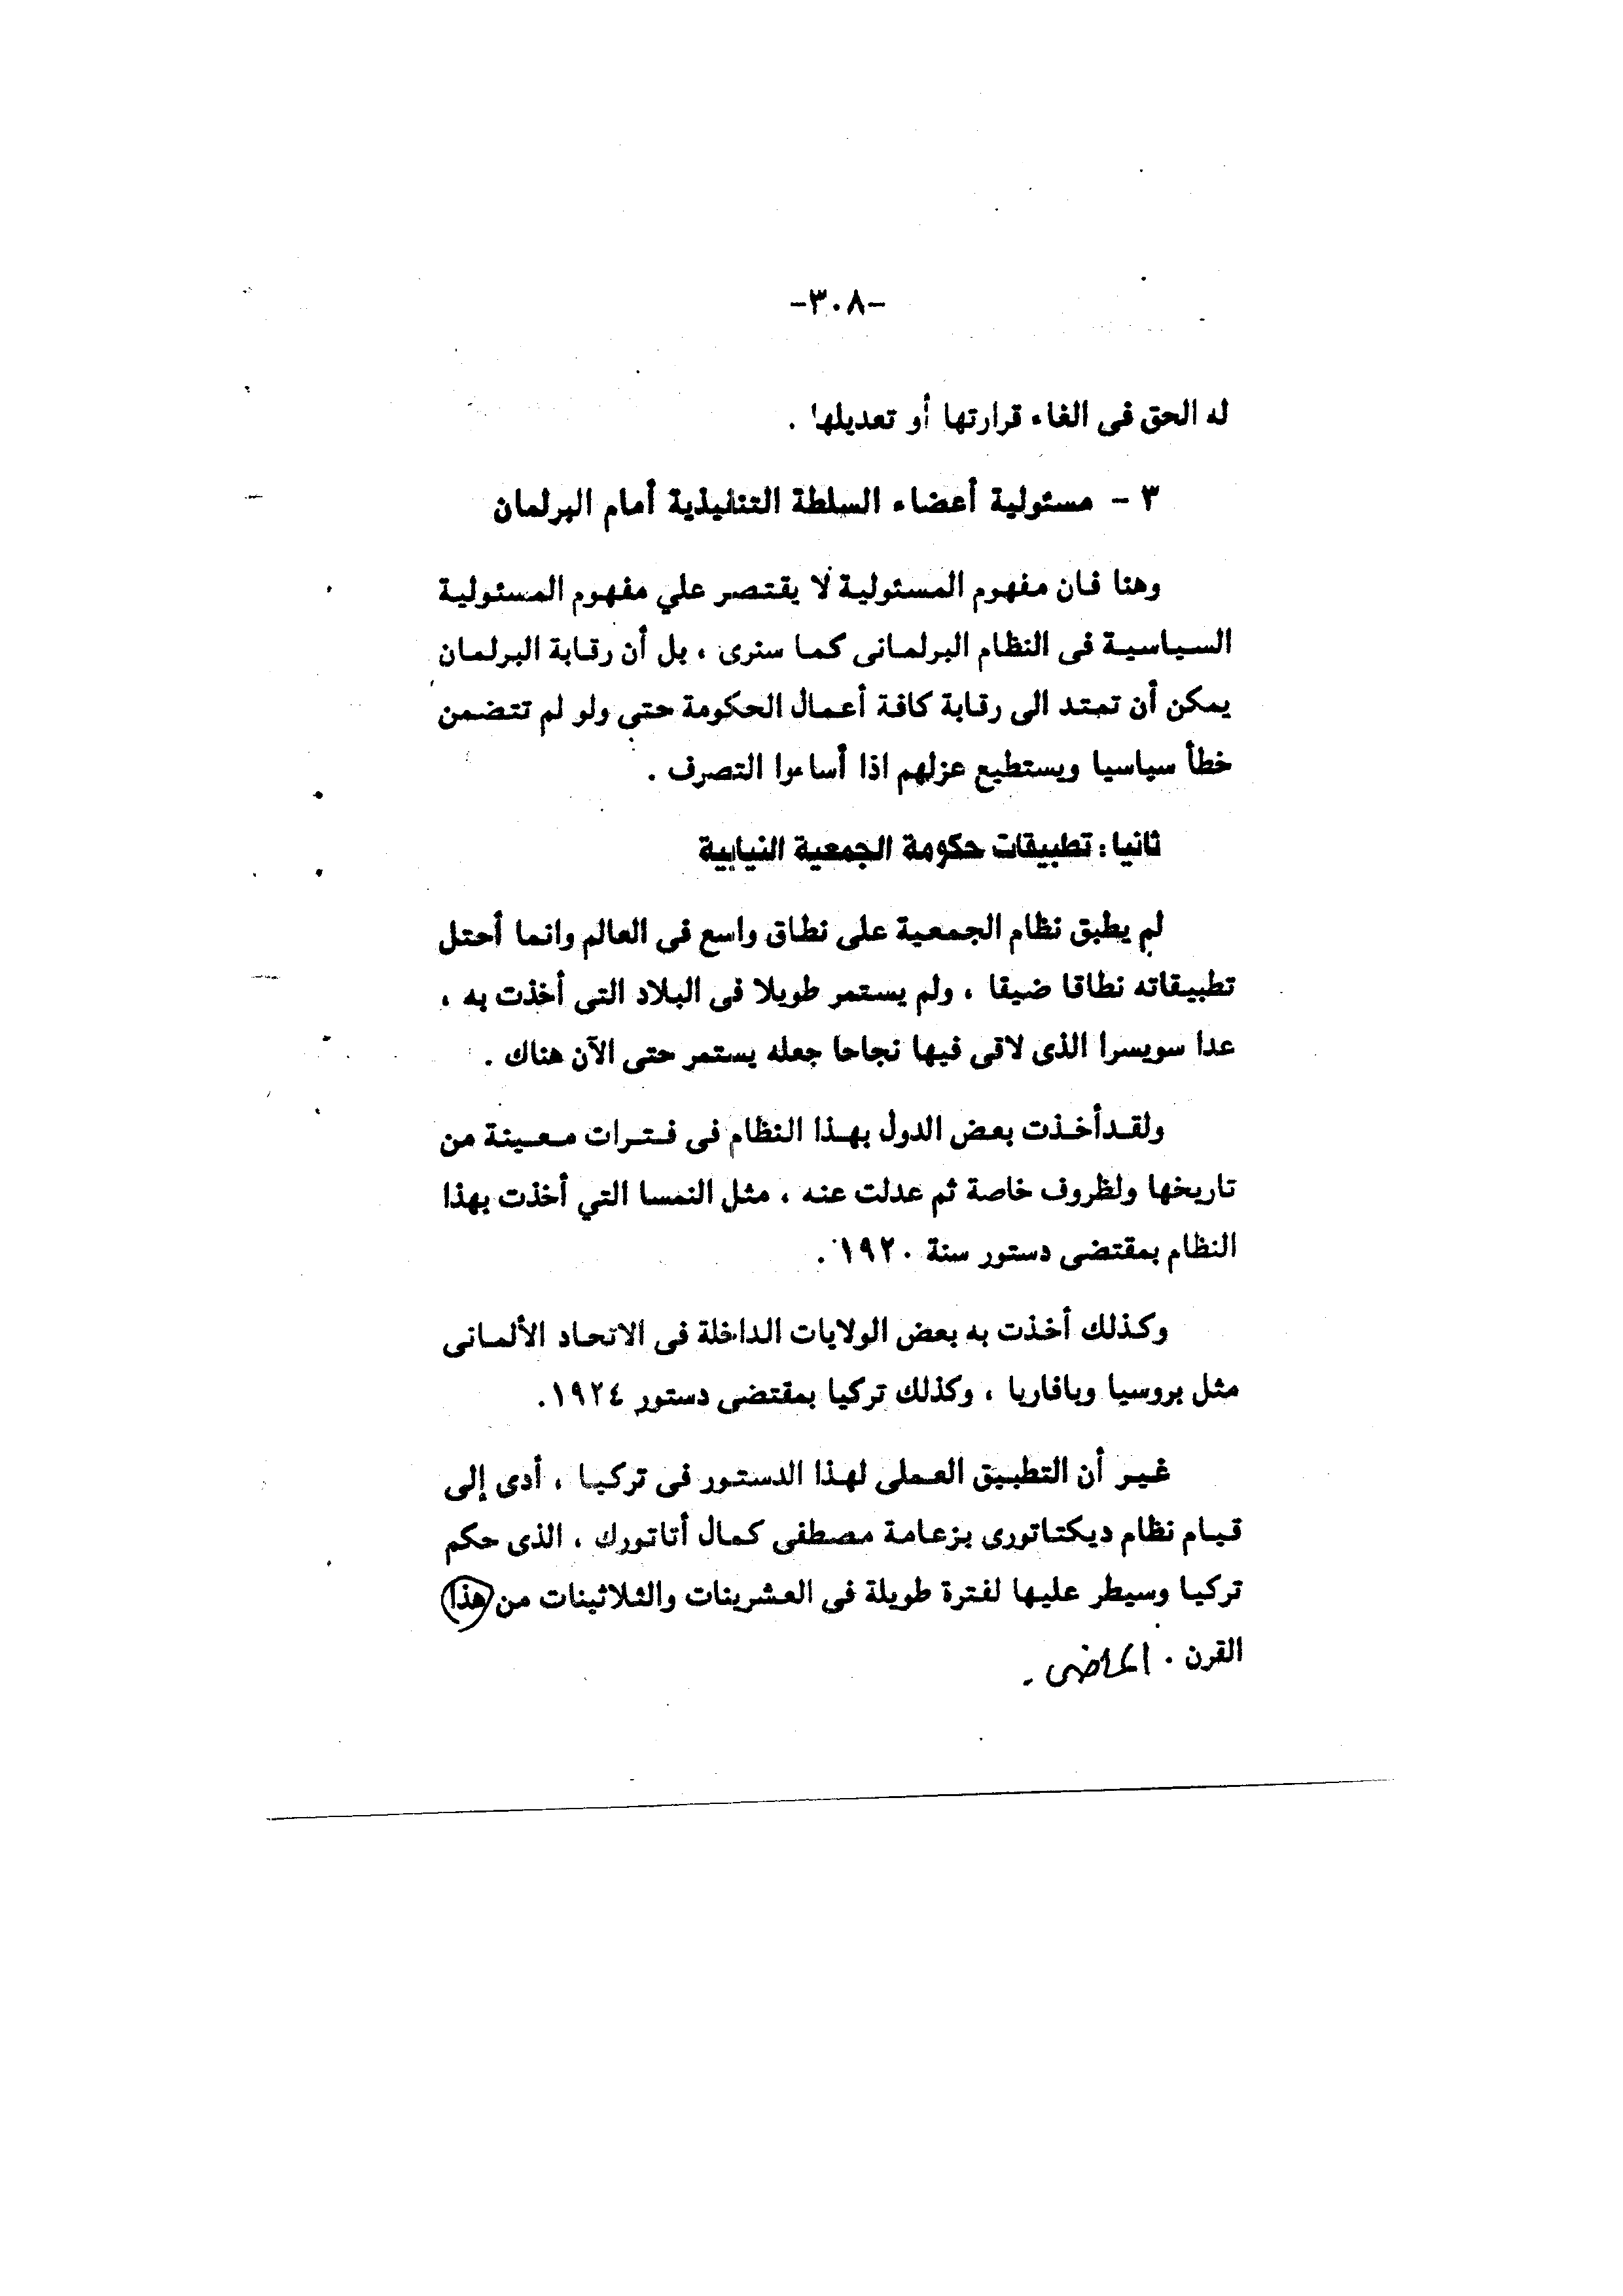 -٣٠٨-
له الحق فى الغاء قرارتها أو تعديلها .
٣ - مسئولية أعضاء السلطة التنفيذية أمام البرلمان
وهنا فان مفهوم المسئولية لا يقتصر علي مفهوم المسئولية
السياسية فى النظام البرلمانى كما سنرى ، بل أن رقابة البرلمان
يمكن أن تمتد الى رقابة كافة أعمال الحكومة حتى ولو لم تتضمن
خطأ سياسيا ويستطيع عزلهم اذا أساءوا التصرف .
ثانيا : تطبيقات حكومة الجمعية النيابية
لم يطبق نظام الجمعية على نطاق واسع فى العالم وانما أحتل
تطبيقاته نطاقا ضيقا ، ولم يستمر طويلا فى البلاد التى أخذت به ،
عدا سويسرا الذى لاقى فيها نجاحا جعله يستمر حتى الآن هناك .
ولقدأخذت بعض الدول بهذا النظام فى فترات معينة من
تاريخها ولظروف خاصة ثم عدلت عنه ، مثل النمسا التي أخذت بهذا
النظام بمقتضى دستور سنة ١٩٢٠ .
وكذلك أخذت به بعض الولايات الداخلة فى الاتحاد الألمانى
مثل بروسيا وبافاريا ، وكذلك تركيا بمقتضى دستور ١٩٢٤.
غير أن التطبيق العملى لهذا الدستور فى تركيا ، أدى إلى
قيام نظام ديكتاتورى بزعامة مصطفى كمال أتاتورك ، الذى حكم
تركيا وسيطر عليها لفترة طويلة فى العشرينات والثلاثينات من هذا
القرن . الماضى .